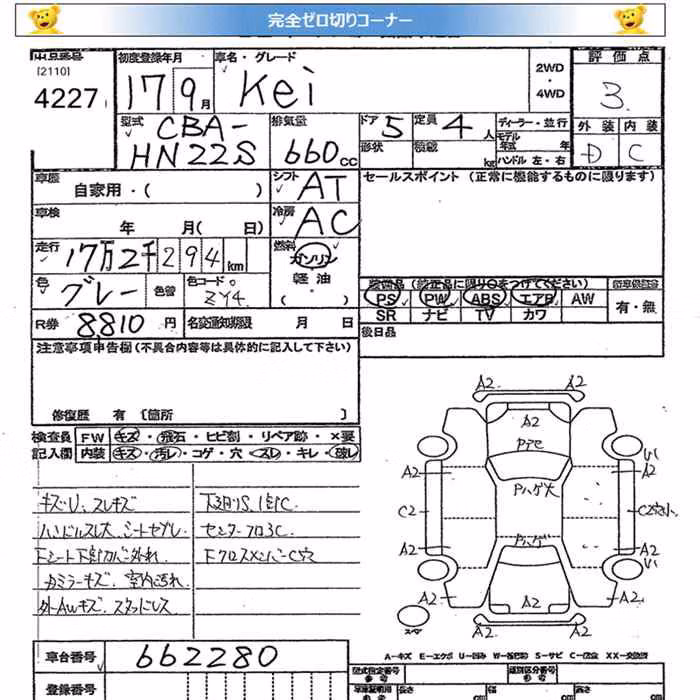 完全ゼロ切りコーナー
出品番号 初度登録年月 車名・グレード 評価点
[2110]
4227 17 9月 Kei 2WD・4WD 3
型式 CBA-HN22S 排気量 660cc ドア 5 定員 4人 ディーラー・並行 外装 内装
形状 積載 kg モデル年式 年 D C
ハンドル 左・右
車歴 自家用・( ) シフト AT セールスポイント (正常に機能するものに限ります)
車検 年 月(日) 冷房 AC
走行 17万2千294km 燃料 ガソリン
軽油
( )
色 グレー 色替 色コード ZY4
装備品
PS PW ABS エアB AW 有・無
SR ナビ TV カワ
R券 8810円 名変通知期限 月 日 後日品
注意事項申告欄(不具合内容等は具体的に記入して下さい)
修復歴 有 〔箇所 〕
検査員 FW キズ・飛石・ヒビ割・リペア跡・×要
記入欄 内装 キズ・汚レ・コゲ・穴・スレ・キレ・破レ
キズU、スレキズ
ハンドルスレ大、シートヤブレ
センターフロアC
Fクロスメンバー
カドミラーキズ、室内汚れ
外AWキズ、スタッドレス
A2 A2
A2
A2 A2
Pハゲ大
C2
Pハゲ
A2 A2
A2 A2 A2
スペア
A-キズ E-エクボ U-凹み W-補修跡 S-サビ C-腐食 XX-交換済
車台番号 662280 型式指定番号 類別区分番号
登録番号 長さ cm 幅 cm 高さ cm